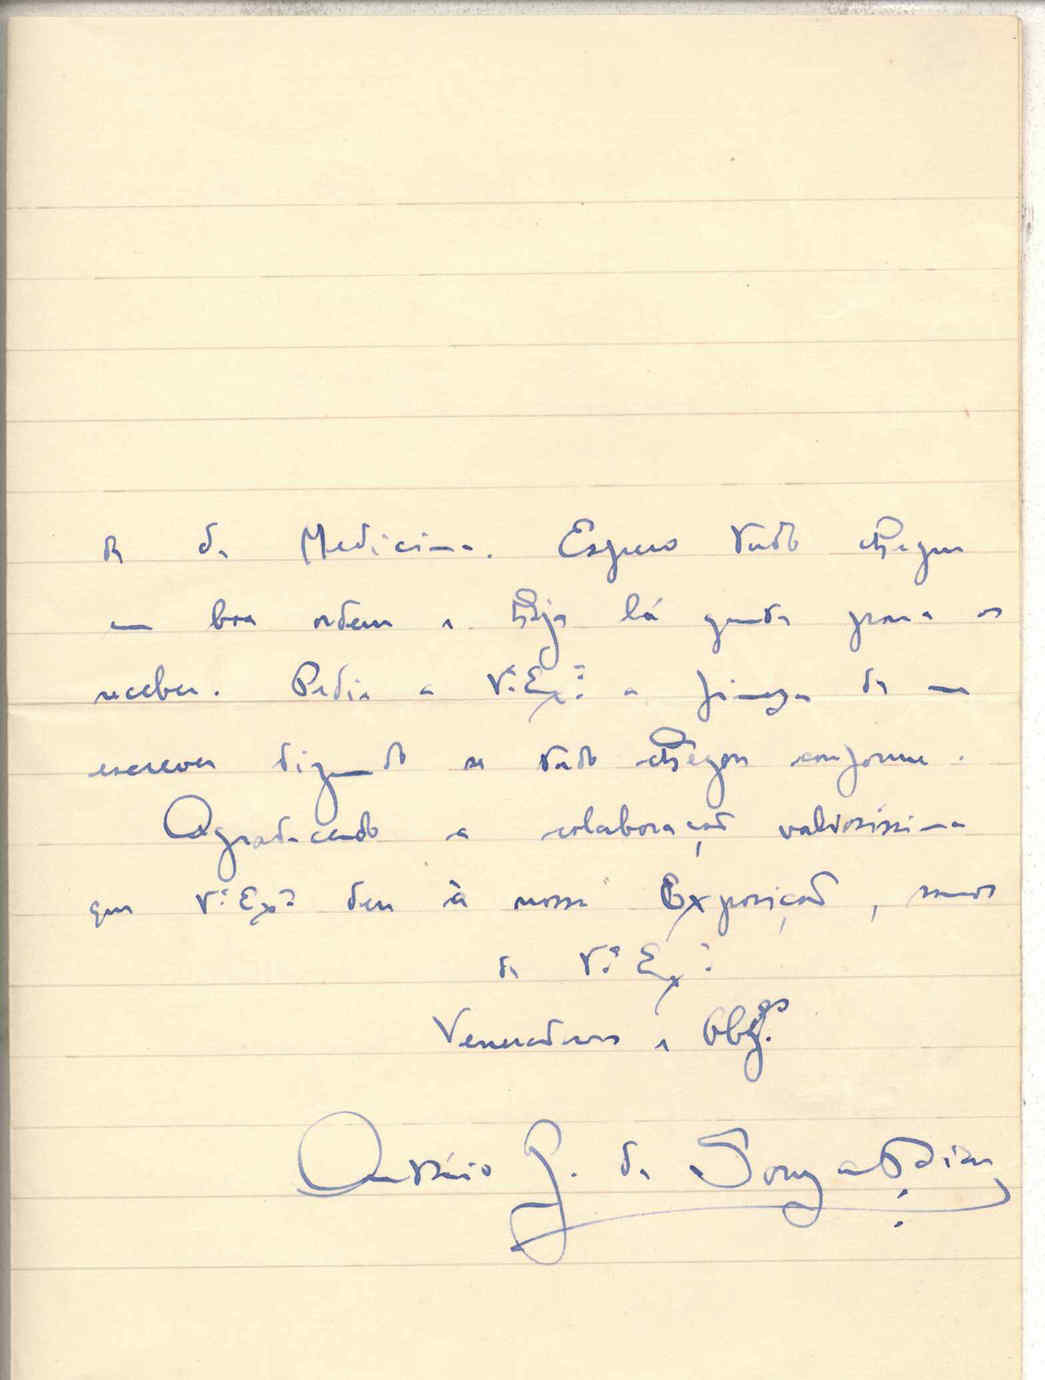 de da Medicina. Espero tudo chegue
em boa ordem e haja lá gente para os
receber. Pedia a V.ª Ex.ª a fineza de me
escrever dizendo se tudo chegou conforme.
Agradecendo a colaboração valiosíssima
que V.ª Ex.ª deu à nossa Exposição, somos
de V.ª Ex.ª
Veneradores e Obbgºs.
António J. de Souza Dias